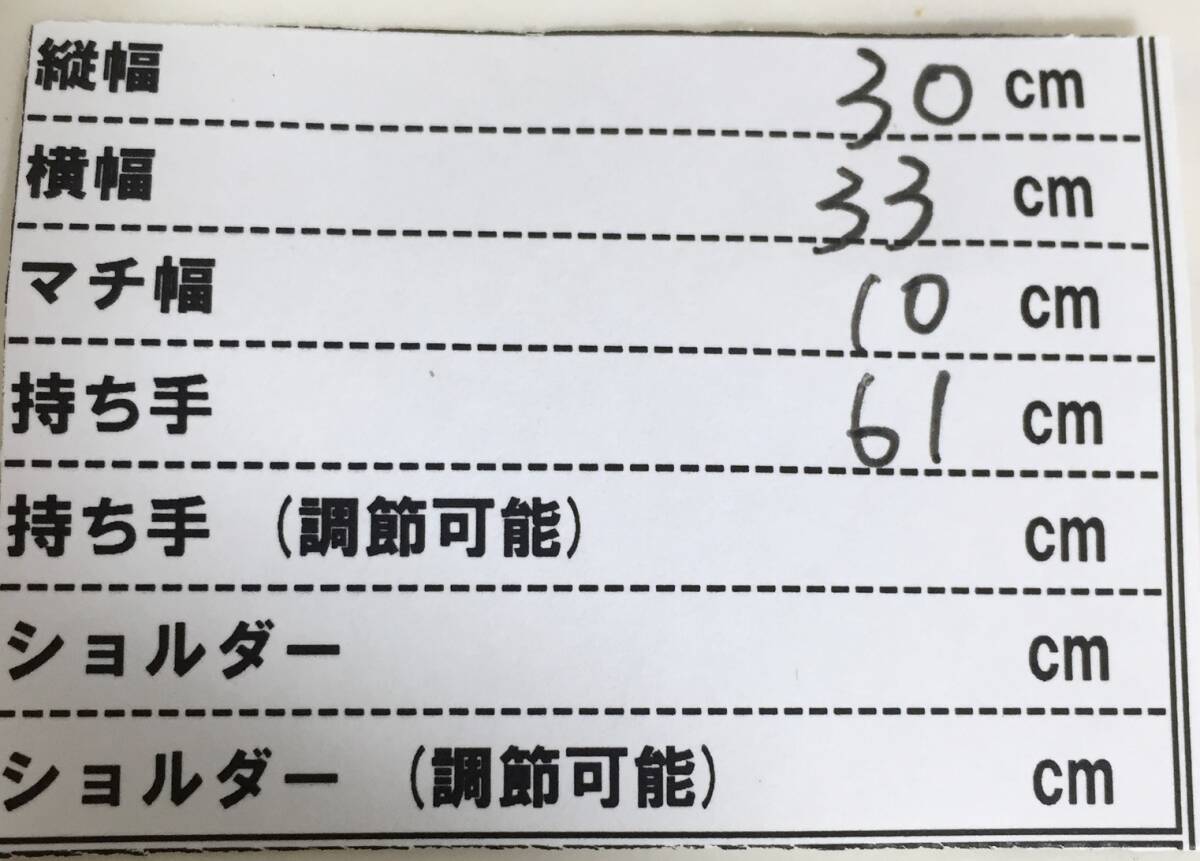 縦幅 30 cm
横幅 33 cm
マチ幅 10 cm
持ち手 61 cm
持ち手 (調節可能) cm
ショルダー cm
ショルダー (調節可能) cm